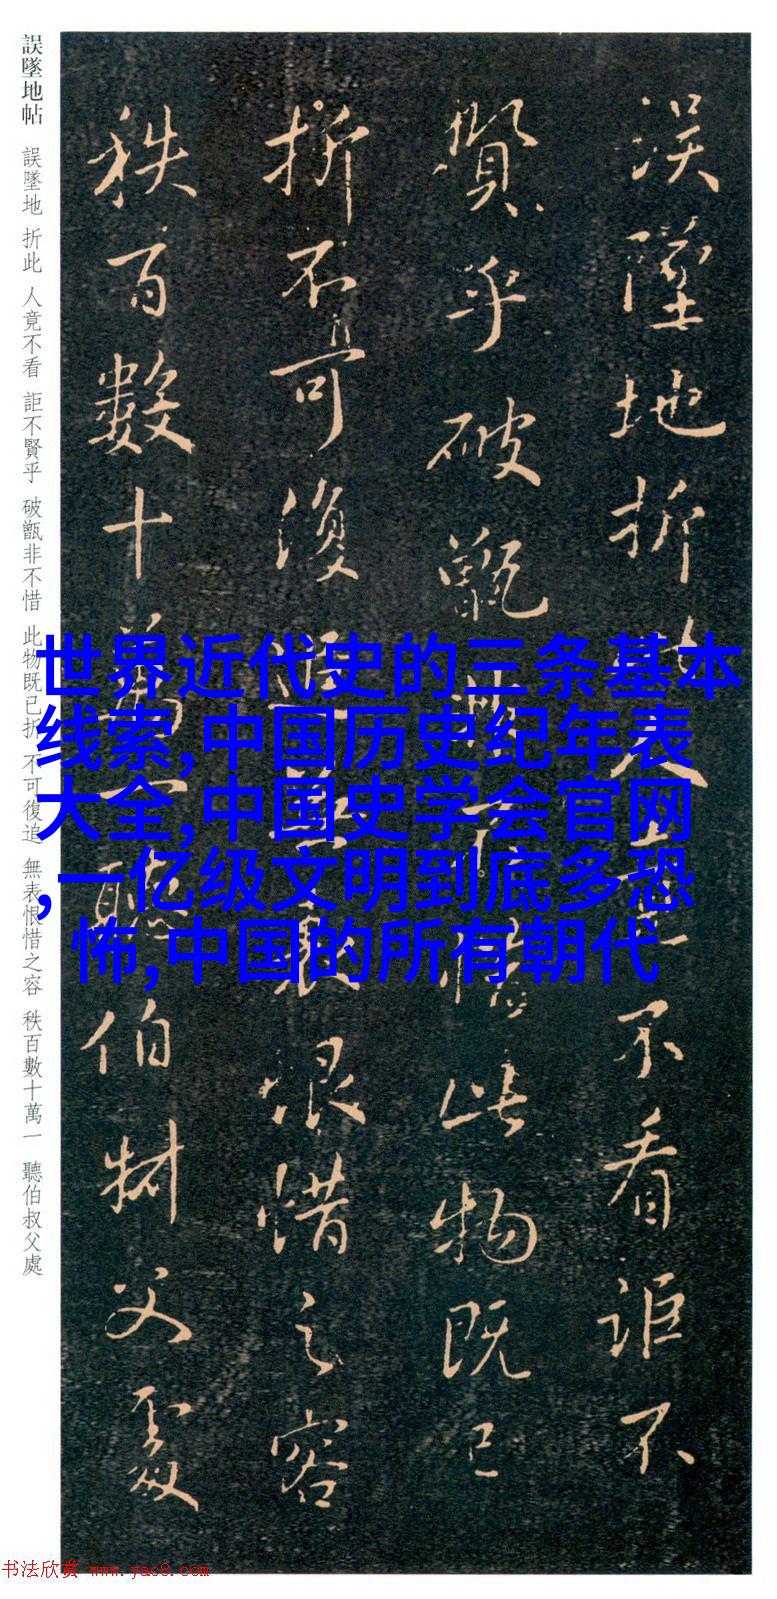 誤墜地折此人竟不看詎不
賢乎破甑非不惜此物既已
折不可復追無表恨惜之容
秩百數十萬一聽伯叔父處
誤墜地帖 誤墜地 折此 人竟不看 詎不賢乎 破甑非不惜 此物既已折 不可復追 無表恨惜之容 秩百數十萬一 聽伯叔父處
世界近代史的三条基本
线索,中国历史纪年表
大全,中国史学会官网
,一亿级文明到底多恐
怖,中国的所有朝代
书法欣赏 www.yac8.com